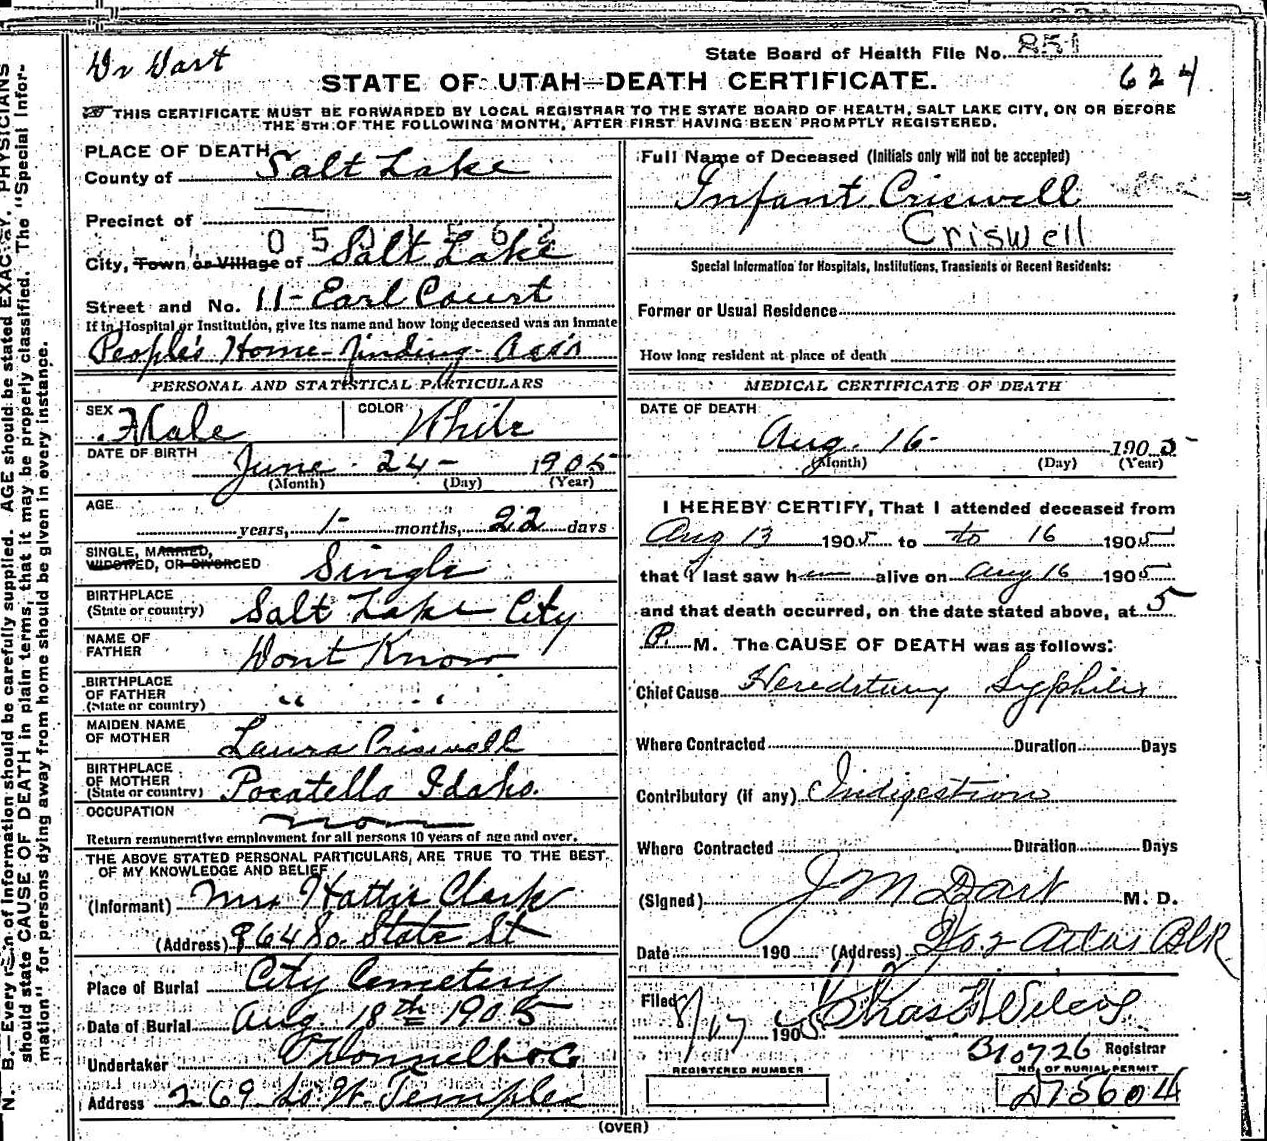 Dr Dart
State Board of Health File No. 851
624
STATE OF UTAH—DEATH CERTIFICATE.
THIS CERTIFICATE MUST BE FORWARDED BY LOCAL REGISTRAR TO THE STATE BOARD OF HEALTH, SALT LAKE CITY, ON OR BEFORE
THE 5TH OF THE FOLLOWING MONTH, AFTER FIRST HAVING BEEN PROMPTLY REGISTERED.
PLACE OF DEATH
County of Salt Lake
Precinct of
City, Town or Village of Salt Lake
Street and No. 11 - Earl Court
If in Hospital or Institution, give its name and how long deceased was an inmate
People's Home-finding-Ass'n
PERSONAL AND STATISTICAL PARTICULARS
SEX Male COLOR White
DATE OF BIRTH June 24 - 1905
(Month) (Day) (Year)
AGE
years, 1- months, 22 days
SINGLE, MARRIED,
WIDOWED, OR DIVORCED Single
BIRTHPLACE
(State or country) Salt Lake City
NAME OF
FATHER Dont Know
BIRTHPLACE
OF FATHER
(State or country) " "
MAIDEN NAME
OF MOTHER Laura Criswell
BIRTHPLACE
OF MOTHER
(State or country) Pocatello Idaho.
OCCUPATION
Return remunerative employment for all persons 10 years of age and over.
THE ABOVE STATED PERSONAL PARTICULARS, ARE TRUE TO THE BEST
OF MY KNOWLEDGE AND BELIEF
(Informant) Mrs Hattie Clark
(Address) 964 So. State St
Place of Burial City Cemetery
Date of Burial Aug. 18th 1905
Undertaker O'Donnell & Co
Address 269 So. W. Temple
Full Name of Deceased (Initials only will not be accepted)
Infant Criswell
Criswell
Special Information for Hospitals, Institutions, Transients or Recent Residents:
Former or Usual Residence
How long resident at place of death
MEDICAL CERTIFICATE OF DEATH
DATE OF DEATH
Aug. 16- 1905
(Month) (Day) (Year)
I HEREBY CERTIFY, That I attended deceased from
Aug 13 1905 to to 16 1905
that I last saw h alive on Aug 16 1905
and that death occurred, on the date stated above, at 5
P. M. The CAUSE OF DEATH was as follows:
Chief Cause Hereditary Syphilis
Where Contracted Duration Days
Contributory (if any) Indigestion
Where Contracted Duration Days
(Signed) J M Dart M. D.
Date 190 (Address) Atlas Blk
Filed 8/17 1905 Chas
B10726 Registrar
REGISTERED NUMBER
NO. OF BURIAL PERMIT
(OVER)
N. B.—Every item of information should be carefully supplied. AGE should be stated EXACTLY. PHYSICIANS
should state CAUSE OF DEATH in plain terms, that it may be properly classified. The "Special Infor-
mation" for persons dying away from home should be given in every instance.